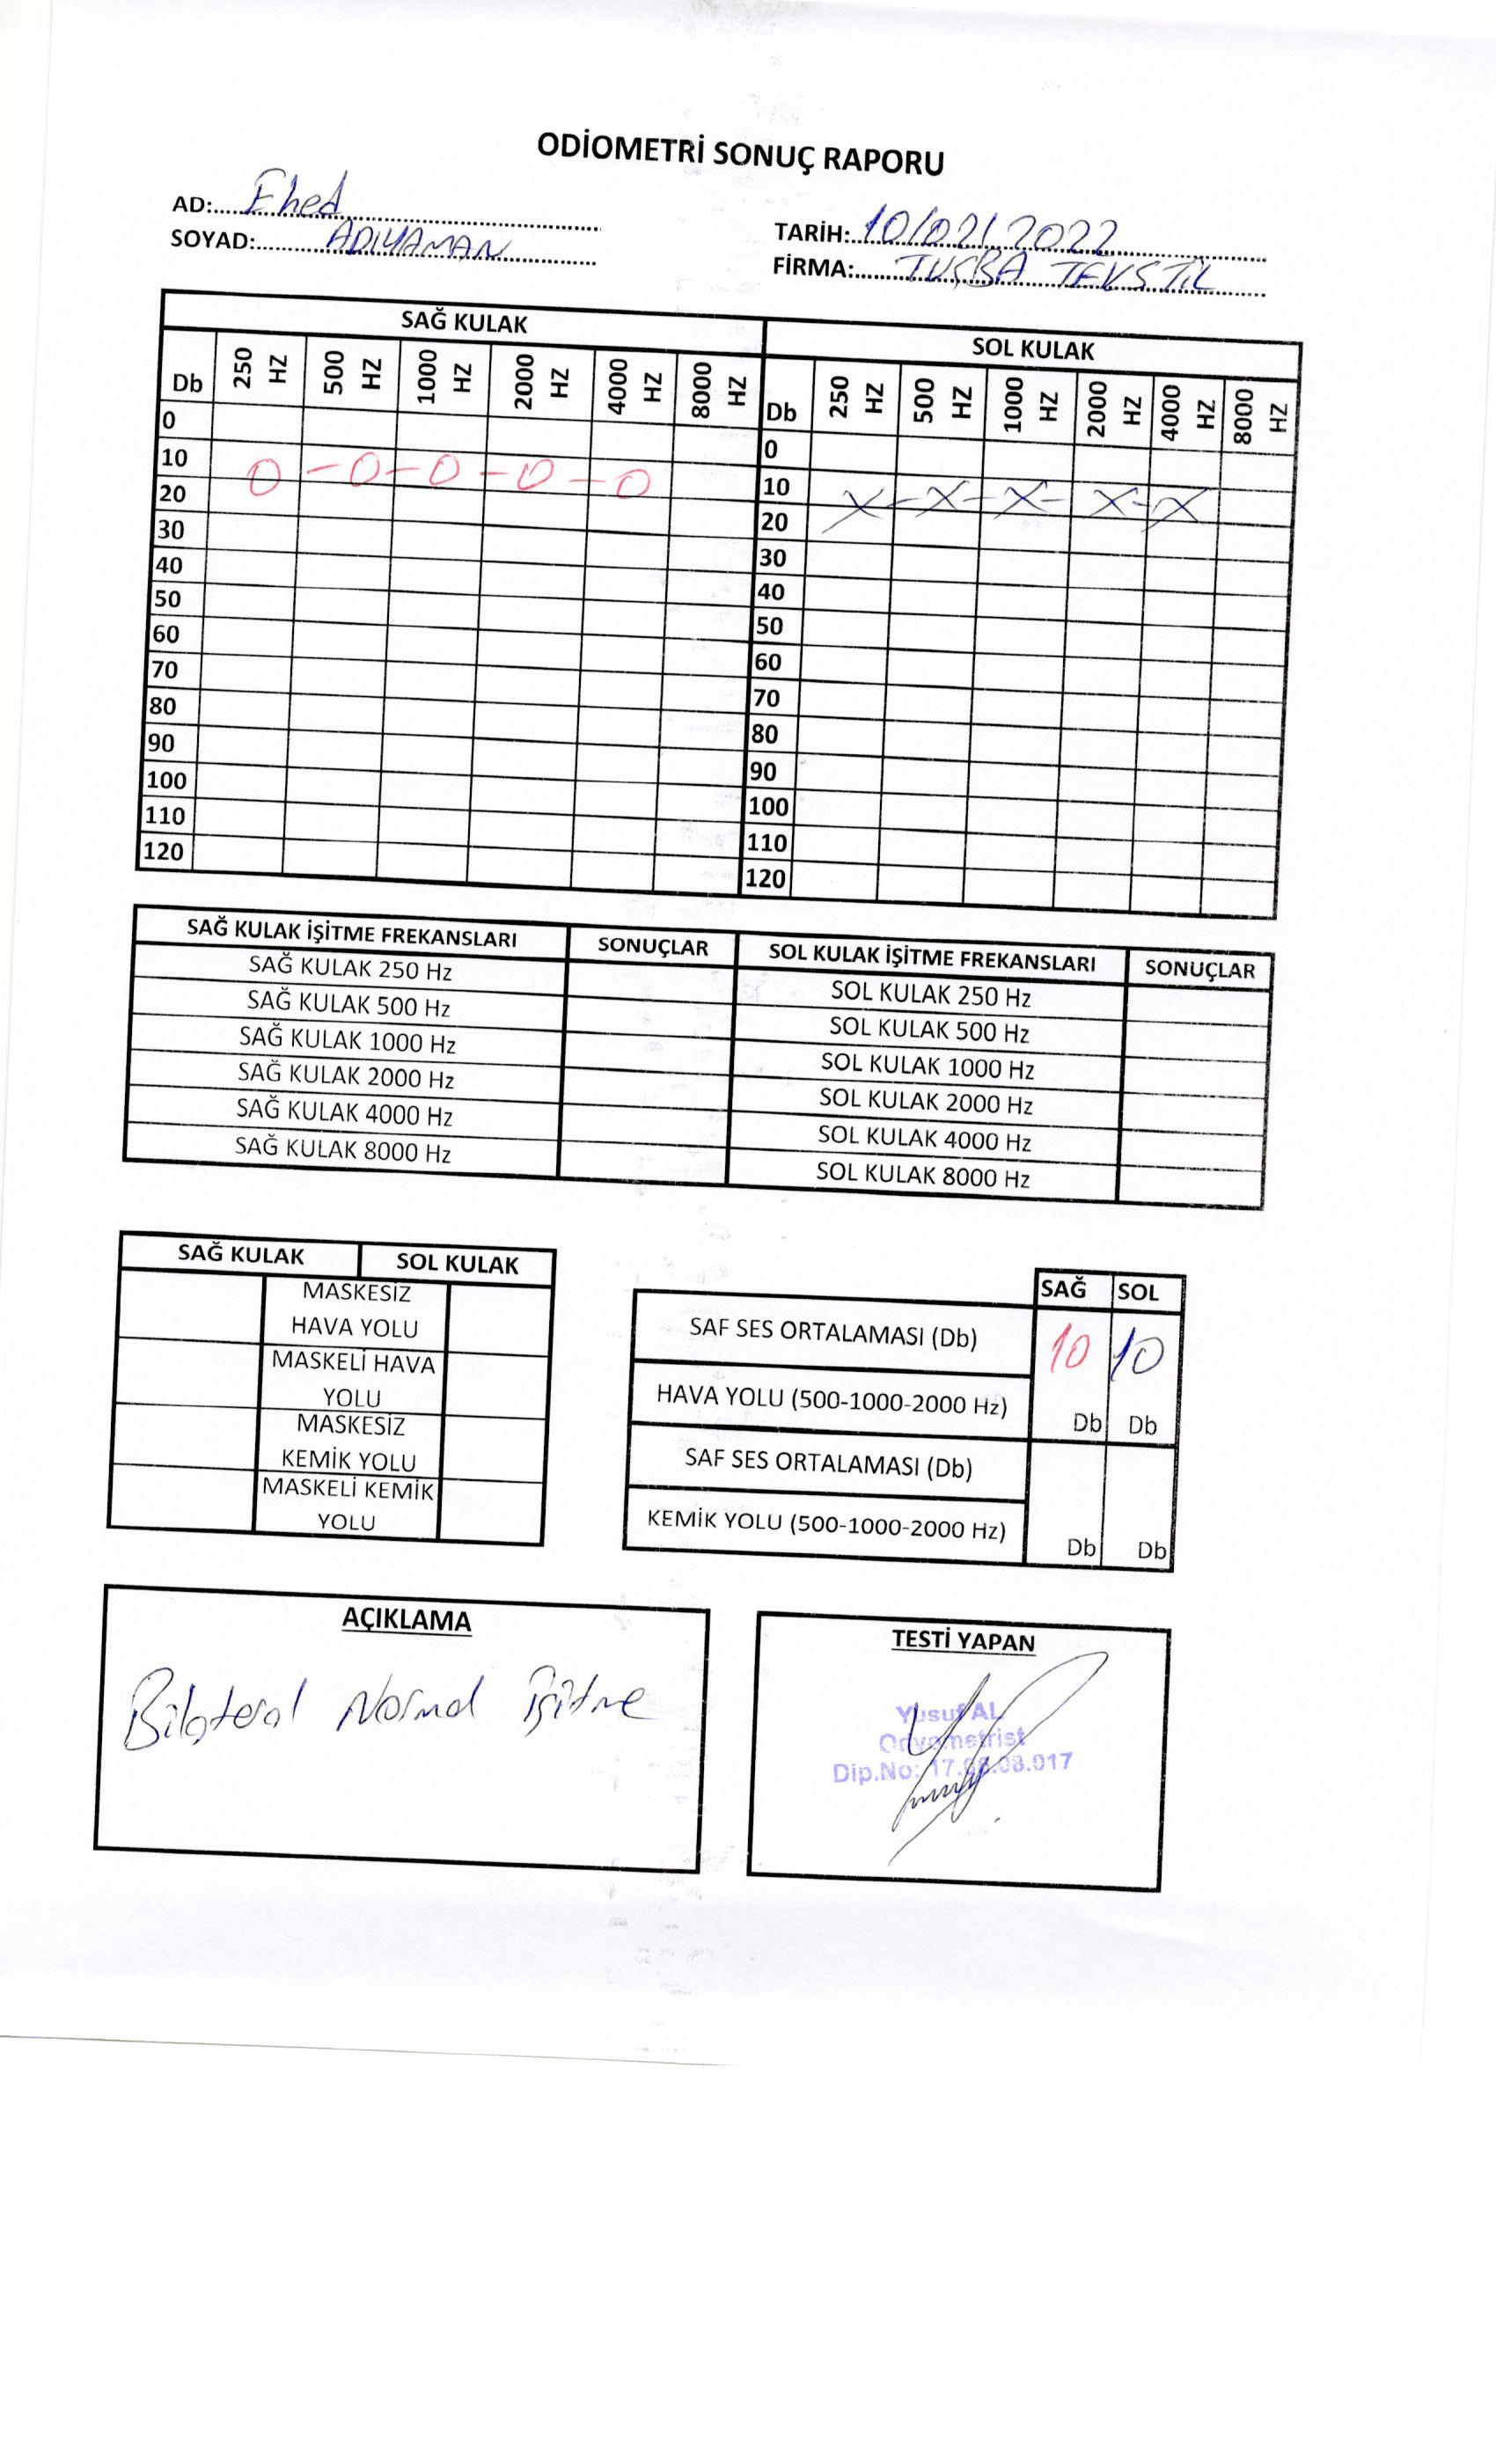 ODİOMETRİ SONUÇ RAPORU
AD: Ehed
SOYAD: ADIYAMAN
TARİH: 10/02/2022
FİRMA: TUĞBA TEKSTİL
SAĞ KULAK SOL KULAK
Db 250 HZ 500 HZ 1000 HZ 2000 HZ 4000 HZ 8000 HZ Db 250 HZ 500 HZ 1000 HZ 2000 HZ 4000 HZ 8000 HZ
0 0
10 O-O-O-O-O 10 X-X-X-X-X
20 20
30 30
40 40
50 50
60 60
70 70
80 80
90 90
100 100
110 110
120 120
SAĞ KULAK İŞİTME FREKANSLARI SONUÇLAR SOL KULAK İŞİTME FREKANSLARI SONUÇLAR
SAĞ KULAK 250 Hz SOL KULAK 250 Hz
SAĞ KULAK 500 Hz SOL KULAK 500 Hz
SAĞ KULAK 1000 Hz SOL KULAK 1000 Hz
SAĞ KULAK 2000 Hz SOL KULAK 2000 Hz
SAĞ KULAK 4000 Hz SOL KULAK 4000 Hz
SAĞ KULAK 8000 Hz SOL KULAK 8000 Hz
SAĞ KULAK SOL KULAK
MASKESİZ
HAVA YOLU
MASKELİ HAVA
YOLU
MASKESİZ
KEMİK YOLU
MASKELİ KEMİK
YOLU
SAĞ SOL
SAF SES ORTALAMASI (Db) 10 10
HAVA YOLU (500-1000-2000 Hz) Db Db
SAF SES ORTALAMASI (Db)
KEMİK YOLU (500-1000-2000 Hz) Db Db
AÇIKLAMA
Bilateral Normal İşitme
TESTİ YAPAN
Yusuf AL
Odyometrist
Dip.No: 17.08.08.017